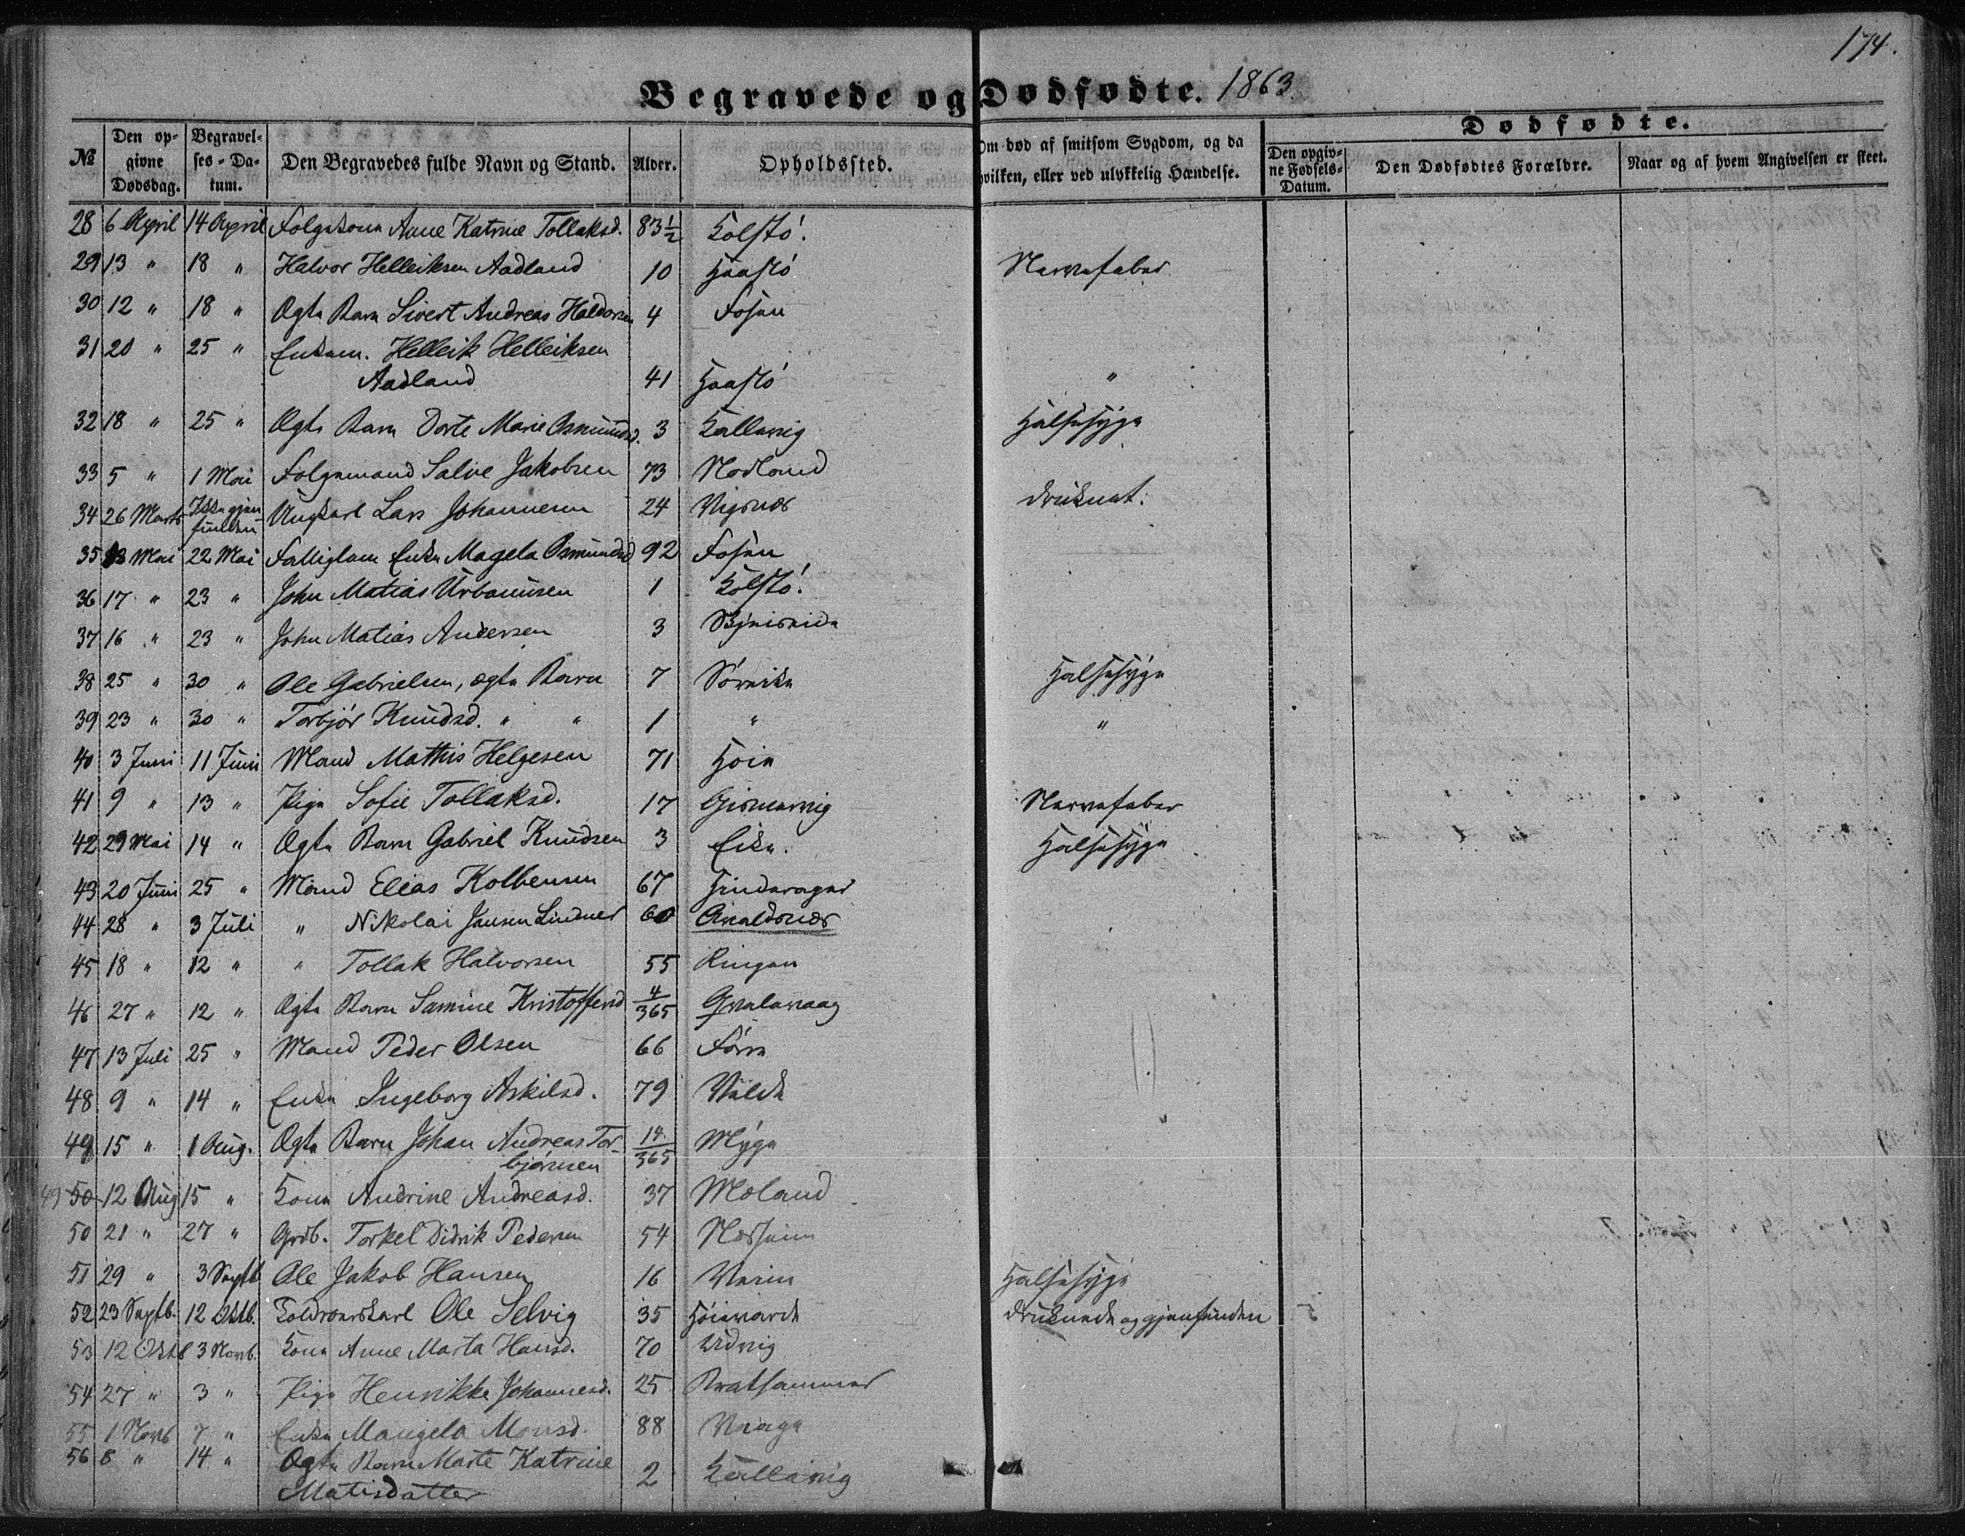 174.
Begravede og Dødfødte. 1863
№ | Den opgivne Dødsdag. | Begravelses-Datum. | Den Begravedes fulde Navn og Stand. | Alder. | Opholdssted. | Om død af smitsom Sygdom, og da hvilken, eller ved ulykkelig Hændelse. | Dødfødte. | Den opgivne Fødsels-Datum. | Den Dødfødtes Forældre. | Naar og af hvem Angivelsen er skeet.
28 | 6 April | 14 April | Folgekone Anne Katrine Tollaksd. | 83 1/2 | Kolstø.
29 | 13 " | 18 " | Halvor Helleiksen Aadland | 10 | Haastø | Nervefeber
30 | 12 " | 18 " | Ægte Barn Sivert Andreas Haldorsen | 4 | Fosen
31 | 20 " | 25 " | Enkem. Helleik Helleiksen
Aadland | 41 | Haastø | "
32 | 18 " | 25 " | Ægte Barn Dorte Marie Osmundsd. | 3 | Kallevig | Halsesyge
33 | 5 " | 1 Mai | Folgemand Salve Jakobsen | 73 | Nodland
34 | 26 Marts | Ikke gjenfunden | Ungkarl Lars Johannesen | 24 | Vigsnæs | druknet.
35 | 13 Mai | 22 Mai | Fattiglem Enke Magela Osmundsd | 92 | Fosen
36 | 17 " | 23 " | John Matias Urbanussen | 1 | Kolstø.
37 | 16 " | 23 " | John Matias Andersen | 3
38 | 25 " | 30 " | Ole Gabrielsen, ægte Barn | 7 | Søreike | Halsesyge
39 | 23 " | 30 " | Torbjør Knudsd. " " | 1 | " | "
40 | 3 Juni | 11 Juni | Mand Mathis Helgesen | 71 | Høie
41 | 9 " | 13 " | Pige Sofie Tollaksd. | 17 | Gismervig | Nervefeber
42 | 29 Mai | 14 " | Ægte Barn Gabriel Knudsen | 3 | Eike. | Halsesyge
43 | 20 Juni | 25 " | Mand Elias Kolbensen | 67 | Hinderager
44 | 28 " | 3 Juli | " Nikolai Jansen Lindner | 60 | Avaldsnæs
45 | 18 " | 12 " | " Tollak Halvorsen | 55 | Ringen
46 | 27 " | 12 " | Ægte Barn Samine Kristoffersd | 4/365 | Gvalevaag
47 | 13 Juli | 25 " | Mand Peder Olsen | 66 | Førre
48 | 9 " | 14 " | Enke Ingeborg Askilsd. | 79 | Velde
49 | 15 " | 1 Aug. | Ægte Barn Johan Andreas Tor-
bjørnsen | 14/365 | Myge
49 50 | 12 Aug | 15 " | Kone Andrine Andreasd. | 37 | Meland
50 | 21 " | 27 " | Grdb. Torkel Didrik Pedersen | 54 | Næsheim
51 | 29 " | 3 Septb | Ole Jakob Hansen | 16 | Verin | Halsesyge
52 | 23 Septb. | 12 Oktb. | Toldroerskarl Ole Selvig | 35 | Høievarde | druknede og gjenfunden
53 | 12 Oktb | 3 Novb. | Kone Anne Marta Hansd. | 70 | Udvig
54 | 27 " | 3 " | Pige Henrikke Johannesd. | 25 | Brathammer
55 | 1 Novb | 7 " | Enke Mangela Monsd. | 88 | Vaage
56 | 8 " | 14 " | Ægte Barn Marte Katrine
Matisdatter | 2 | Kallevig